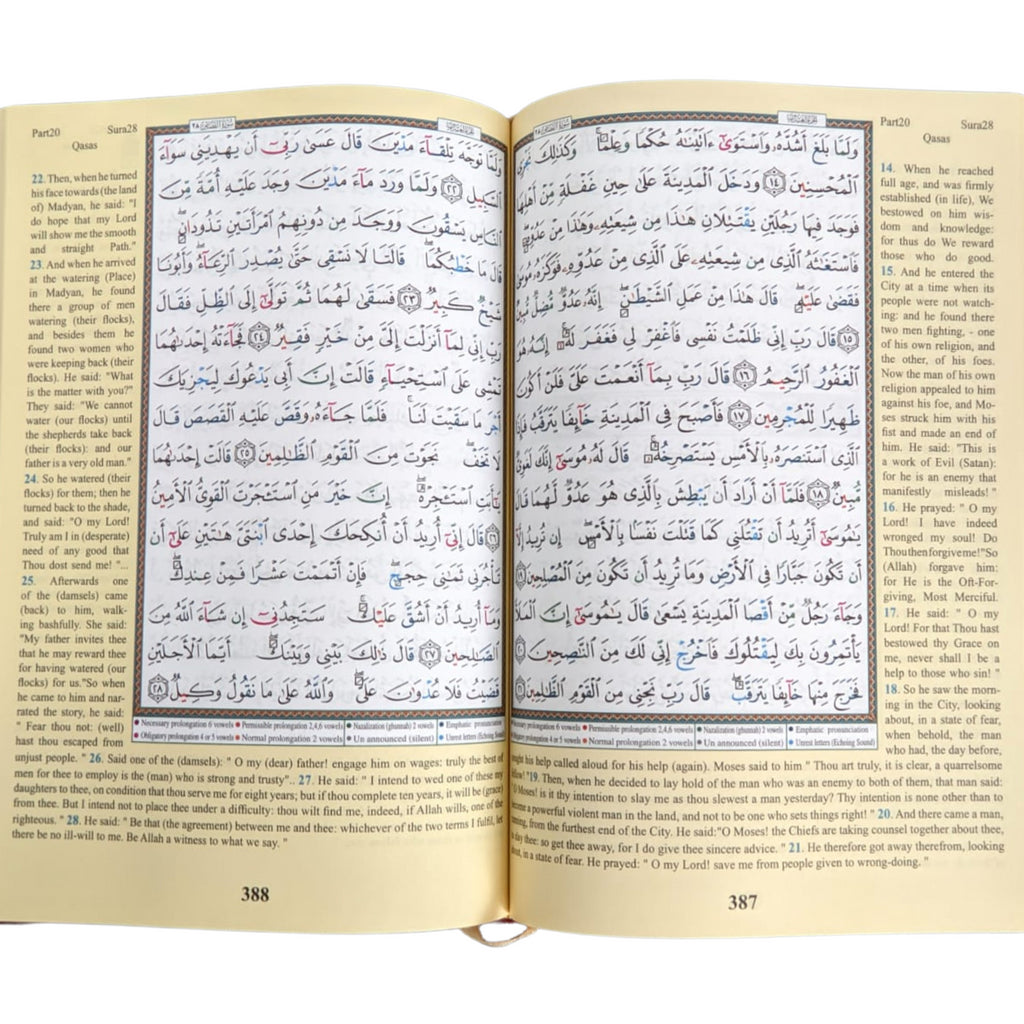 Part20 Sura28
Qasas
سُورَةُ القَصَصِ ٢٨
وَلَمَّا بَلَغَ أَشُدَّهُۥ وَٱسْتَوَىٰٓ ءَاتَيْنَٰهُ حُكْمًا وَعِلْمًا ۚ وَكَذَٰلِكَ نَجْزِى
ٱلْمُحْسِنِينَ ١٤ وَدَخَلَ ٱلْمَدِينَةَ عَلَىٰ حِينِ غَفْلَةٍ مِّنْ أَهْلِهَا
فَوَجَدَ فِيهَا رَجُلَيْنِ يَقْتَتِلَانِ هَٰذَا مِن شِيعَتِهِۦ وَهَٰذَا مِنْ عَدُوِّهِۦ ۖ
فَٱسْتَغَٰثَهُ ٱلَّذِى مِن شِيعَتِهِۦ عَلَى ٱلَّذِى مِنْ عَدُوِّهِۦ فَوَكَزَهُۥ مُوسَىٰ
فَقَضَىٰ عَلَيْهِ ۖ قَالَ هَٰذَا مِنْ عَمَلِ ٱلشَّيْطَٰنِ ۖ إِنَّهُۥ عَدُوٌّ مُّضِلٌّ مُّبِينٌ
١٥ قَالَ رَبِّ إِنِّى ظَلَمْتُ نَفْسِى فَٱغْفِرْ لِى فَغَفَرَ لَهُۥٓ ۚ إِنَّهُۥ هُوَ
ٱلْغَفُورُ ٱلرَّحِيمُ ١٦ قَالَ رَبِّ بِمَآ أَنْعَمْتَ عَلَىَّ فَلَنْ أَكُونَ
ظَهِيرًا لِّلْمُجْرِمِينَ ١٧ فَأَصْبَحَ فِى ٱلْمَدِينَةِ خَآئِفًا يَتَرَقَّبُ فَإِذَا
ٱلَّذِى ٱسْتَنصَرَهُۥ بِٱلْأَمْسِ يَسْتَصْرِخُهُۥ ۚ قَالَ لَهُۥ مُوسَىٰٓ إِنَّكَ لَغَوِىٌّ
مُّبِينٌ ١٨ فَلَمَّآ أَنْ أَرَادَ أَن يَبْطِشَ بِٱلَّذِى هُوَ عَدُوٌّ لَّهُمَا قَالَ
يَٰمُوسَىٰٓ أَتُرِيدُ أَن تَقْتُلَنِى كَمَا قَتَلْتَ نَفْسًۢا بِٱلْأَمْسِ ۖ إِن تُرِيدُ إِلَّآ
أَن تَكُونَ جَبَّارًا فِى ٱلْأَرْضِ وَمَا تُرِيدُ أَن تَكُونَ مِنَ ٱلْمُصْلِحِينَ ١٩
وَجَآءَ رَجُلٌ مِّنْ أَقْصَا ٱلْمَدِينَةِ يَسْعَىٰ قَالَ يَٰمُوسَىٰٓ إِنَّ ٱلْمَلَأَ
يَأْتَمِرُونَ بِكَ لِيَقْتُلُوكَ فَٱخْرُجْ إِنِّى لَكَ مِنَ ٱلنَّٰصِحِينَ ٢٠
فَخَرَجَ مِنْهَا خَآئِفًا يَتَرَقَّبُ ۖ قَالَ رَبِّ نَجِّنِى مِنَ ٱلْقَوْمِ ٱلظَّٰلِمِينَ ٢١
prolongation 6 vowels Permissible prolongation 2,4,6 vowels Nazalization (ghunnah) 2 vowels Emphatic pronunciation
prolongation 4 or 5 vowels Normal prolongation 2 vowels Un announced (silent) Unrest letters (Echoing Sound)
14. When he reached
full age, and was firmly
established (in life), We
bestowed on him wis-
dom and knowledge:
for thus do We reward
those who do good.
15. And he entered the
City at a time when its
people were not watch-
ing: and he found there
two men fighting, - one
of his own religion, and
the other, of his foes.
Now the man of his own
religion appealed to him
against his foe, and Mo-
ses struck him with his
fist and made an end of
him. He said: "This is
a work of Evil (Satan):
for he is an enemy that
manifestly misleads! "
16. He prayed: " O my
Lord! I have indeed
wronged my soul! Do
Thou then forgive me!"So
(Allah) forgave him:
for He is the Oft-For-
giving, Most Merciful.
17. He said: " O my
Lord! For that Thou hast
bestowed thy Grace on
me, never shall I be a
help to those who sin! "
18. So he saw the morn-
ing in the City, looking
about, in a state of fear,
when behold, the man
who had, the day before,
his help called aloud for his help (again). Moses said to him " Thou art truly, it is clear, a quarrelsome
"19. Then, when he decided to lay hold of the man who was an enemy to both of them, that man said:
O Moses! is it thy intention to slay me as thou slewest a man yesterday? Thy intention is none other than to
become a powerful violent man in the land, and not to be one who sets things right! " 20. And there came a man,
from the furthest end of the City. He said:"O Moses! the Chiefs are taking counsel together about thee,
thee: so get thee away, for I do give thee sincere advice. " 21. He therefore got away therefrom, looking
in a state of fear. He prayed: " O my Lord! save me from people given to wrong-doing. "
387
Part20 Sura28
Qasas
سُورَةُ القَصَصِ ٢٨
وَلَمَّا تَوَجَّهَ تِلْقَآءَ مَدْيَنَ قَالَ عَسَىٰ رَبِّىٓ أَن يَهْدِيَنِى سَوَآءَ
ٱلسَّبِيلِ ٢٢ وَلَمَّا وَرَدَ مَآءَ مَدْيَنَ وَجَدَ عَلَيْهِ أُمَّةً مِّنَ
ٱلنَّاسِ يَسْقُونَ وَوَجَدَ مِن دُونِهِمُ ٱمْرَأَتَيْنِ تَذُودَانِ ۖ
قَالَ مَا خَطْبُكُمَا ۖ قَالَتَا لَا نَسْقِى حَتَّىٰ يُصْدِرَ ٱلرِّعَآءُ ۖ وَأَبُونَا
شَيْخٌ كَبِيرٌ ٢٣ فَسَقَىٰ لَهُمَا ثُمَّ تَوَلَّىٰٓ إِلَى ٱلظِّلِّ فَقَالَ
رَبِّ إِنِّى لِمَآ أَنزَلْتَ إِلَىَّ مِنْ خَيْرٍ فَقِيرٌ ٢٤ فَجَآءَتْهُ إِحْدَىٰهُمَا
تَمْشِى عَلَى ٱسْتِحْيَآءٍ قَالَتْ إِنَّ أَبِى يَدْعُوكَ لِيَجْزِيَكَ
أَجْرَ مَا سَقَيْتَ لَنَا ۚ فَلَمَّا جَآءَهُۥ وَقَصَّ عَلَيْهِ ٱلْقَصَصَ قَالَ
لَا تَخَفْ ۖ نَجَوْتَ مِنَ ٱلْقَوْمِ ٱلظَّٰلِمِينَ ٢٥ قَالَتْ إِحْدَىٰهُمَا
يَٰٓأَبَتِ ٱسْتَـْٔجِرْهُ ۖ إِنَّ خَيْرَ مَنِ ٱسْتَـْٔجَرْتَ ٱلْقَوِىُّ ٱلْأَمِينُ
٢٦ قَالَ إِنِّىٓ أُرِيدُ أَنْ أُنكِحَكَ إِحْدَى ٱبْنَتَىَّ هَٰتَيْنِ عَلَىٰٓ أَن
تَأْجُرَنِى ثَمَٰنِىَ حِجَجٍ ۖ فَإِنْ أَتْمَمْتَ عَشْرًا فَمِنْ عِندِكَ ۖ
وَمَآ أُرِيدُ أَنْ أَشُقَّ عَلَيْكَ ۚ سَتَجِدُنِىٓ إِن شَآءَ ٱللَّهُ مِنَ
ٱلصَّٰلِحِينَ ٢٧ قَالَ ذَٰلِكَ بَيْنِى وَبَيْنَكَ ۖ أَيَّمَا ٱلْأَجَلَيْنِ
قَضَيْتُ فَلَا عُدْوَٰنَ عَلَىَّ ۖ وَٱللَّهُ عَلَىٰ مَا نَقُولُ وَكِيلٌ ٢٨
Necessary prolongation 6 vowels Permissible prolongation 2,4,6 vowels Nazalization (ghunnah) 2 vowels Emphatic pronunciation
Obligatory prolongation 4 or 5 vowels Normal prolongation 2 vowels Un announced (silent) Unrest letters (Echoing Sound)
22. Then, when he turned
his face towards (the land
of) Madyan, he said: "I
do hope that my Lord
will show me the smooth
and straight Path."
23. And when he arrived
at the watering (Place)
in Madyan, he found
there a group of men
watering (their flocks),
and besides them he
found two women who
were keeping back (their
flocks). He said: "What
is the matter with you?"
They said: "We cannot
water (our flocks) until
the shepherds take back
(their flocks): and our
father is a very old man."
24. So he watered (their
flocks) for them; then he
turned back to the shade,
and said: "O my Lord!
Truly am I in (desperate)
need of any good that
Thou dost send me! "...
25. Afterwards one
of the (damsels) came
(back) to him, walk-
ing bashfully. She said:
"My father invites thee
that he may reward thee
for having watered (our
flocks) for us."So when
he came to him and nar-
rated the story, he said:
" Fear thou not: (well)
hast thou escaped from
unjust people. " 26. Said one of the (damsels): " O my (dear) father! engage him on wages: truly the best of
men for thee to employ is the (man) who is strong and trusty".. 27. He said: " I intend to wed one of these my
daughters to thee, on condition that thou serve me for eight years; but if thou complete ten years, it will be (grace)
from thee. But I intend not to place thee under a difficulty: thou wilt find me, indeed, if Allah wills, one of the
righteous. " 28. He said: " Be that (the agreement) between me and thee: whichever of the two terms I fulfil, let
there be no ill-will to me. Be Allah a witness to what we say. "
388